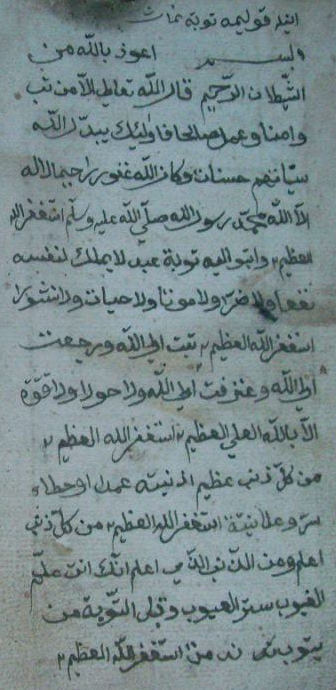 اعوذ بالله من
الشّيطان الرّجيم قال اللّه تعالى الاّ من تب
وامنا وعمل صالحا فاولئك يبدّل اللّه
سيّاتهم حسنات وكان اللّه غفورا رحيما لااله
الاّ اللّه محمّد رسول اللّه صلّى اللّه عليه وسلّم استغفر اللّه
العظيم واتبو اليه توبة عبد لا يملك لنفسه
نفعا ولا ضرّا ولا موتا ولا حيات ولا نشورا
استغفر اللّه العظيم تبت الى اللّه ورجعت
الى اللّه الى اللّه ولا حولا ولا قوّة
الاّ باللّه العلي العظيم استغفر اللّه العظيم
من كلّ ذنب عظيم اذنبته عمدا او خطاء
سرّ وعلانيّة استغفر اللّه العظيم من كلّ ذنب
اعلم ومن الذّنب الّذي اعلم انّك انت علّم
الغيوب ستّر العيوب وقبل التّوبة من
استغفر اللّه العظيم